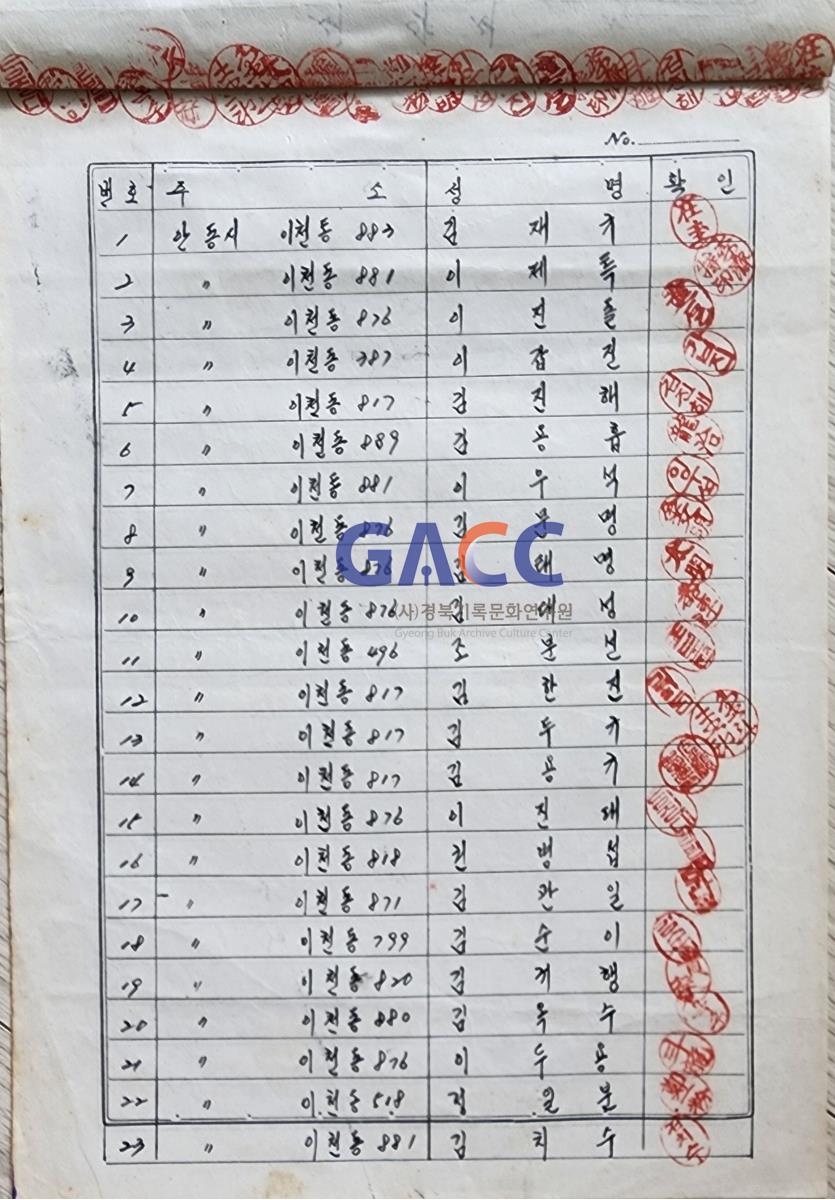 No.
번호 주소 성명 확인
1 안동시 이천동 883 김재규
2 〃 이천동 881 이제특
3 〃 이천동 876 이진돌
4 〃 이천동 387 이잡진
5 〃 이천동 817 김진해
6 〃 이천동 889 김용흡
7 〃 이천동 881 이우석
8 〃 이천동 876 김문명
9 〃 이천동 876 김태명
10 〃 이천동 876 김대성
11 〃 이천동 496 조분년
12 〃 이천동 817 김한선
13 〃 이천동 817 김두규
14 〃 이천동 817 김용규
15 〃 이천동 876 이진태
16 〃 이천동 818 권병섭
17 〃 이천동 871 김관일
18 〃 이천동 799 김순이
19 〃 이천동 820 김계행
20 〃 이천동 880 김옥수
21 〃 이천동 876 이두용
22 〃 이천동 518 정일분
23 〃 이천동 881 김치수
GACC
(사)경북기록문화연구원
Gyeong Buk Archive Culture Center